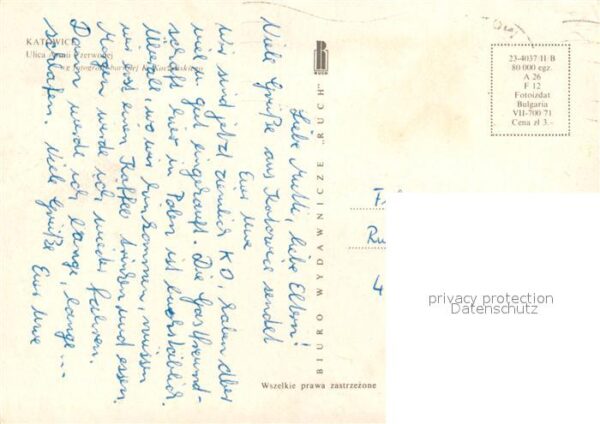 KATOWICE
Ulica Armii Czerwonej
23-4037/II/B
80 000 egz.
A 26
F 12
Fotoizdat
Bulgaria
VII-700 71
Cena zł 3.-
RUCH
BIURO WYDAWNICZE „RUCH"
Wszelkie prawa zastrzeżone
Liebe Mutti, liebe Eltern!
Viele Grüße aus Katowice sendet
Euer Uwe
Wir sind jetzt ziemlich KO, haben aber
viel u. gut eingekauft. Die Gastfreund-
schaft hier in Polen ist
Überall, wo wir hinkommen, müssen
wir erst einen Kaffee trinken und essen.
Morgen werde ich wieder fahren.
Dann werde ich lange, lange ...
schlafen. Viele Grüße Euer Uwe
Ru
4
privacy protection
Datenschutz